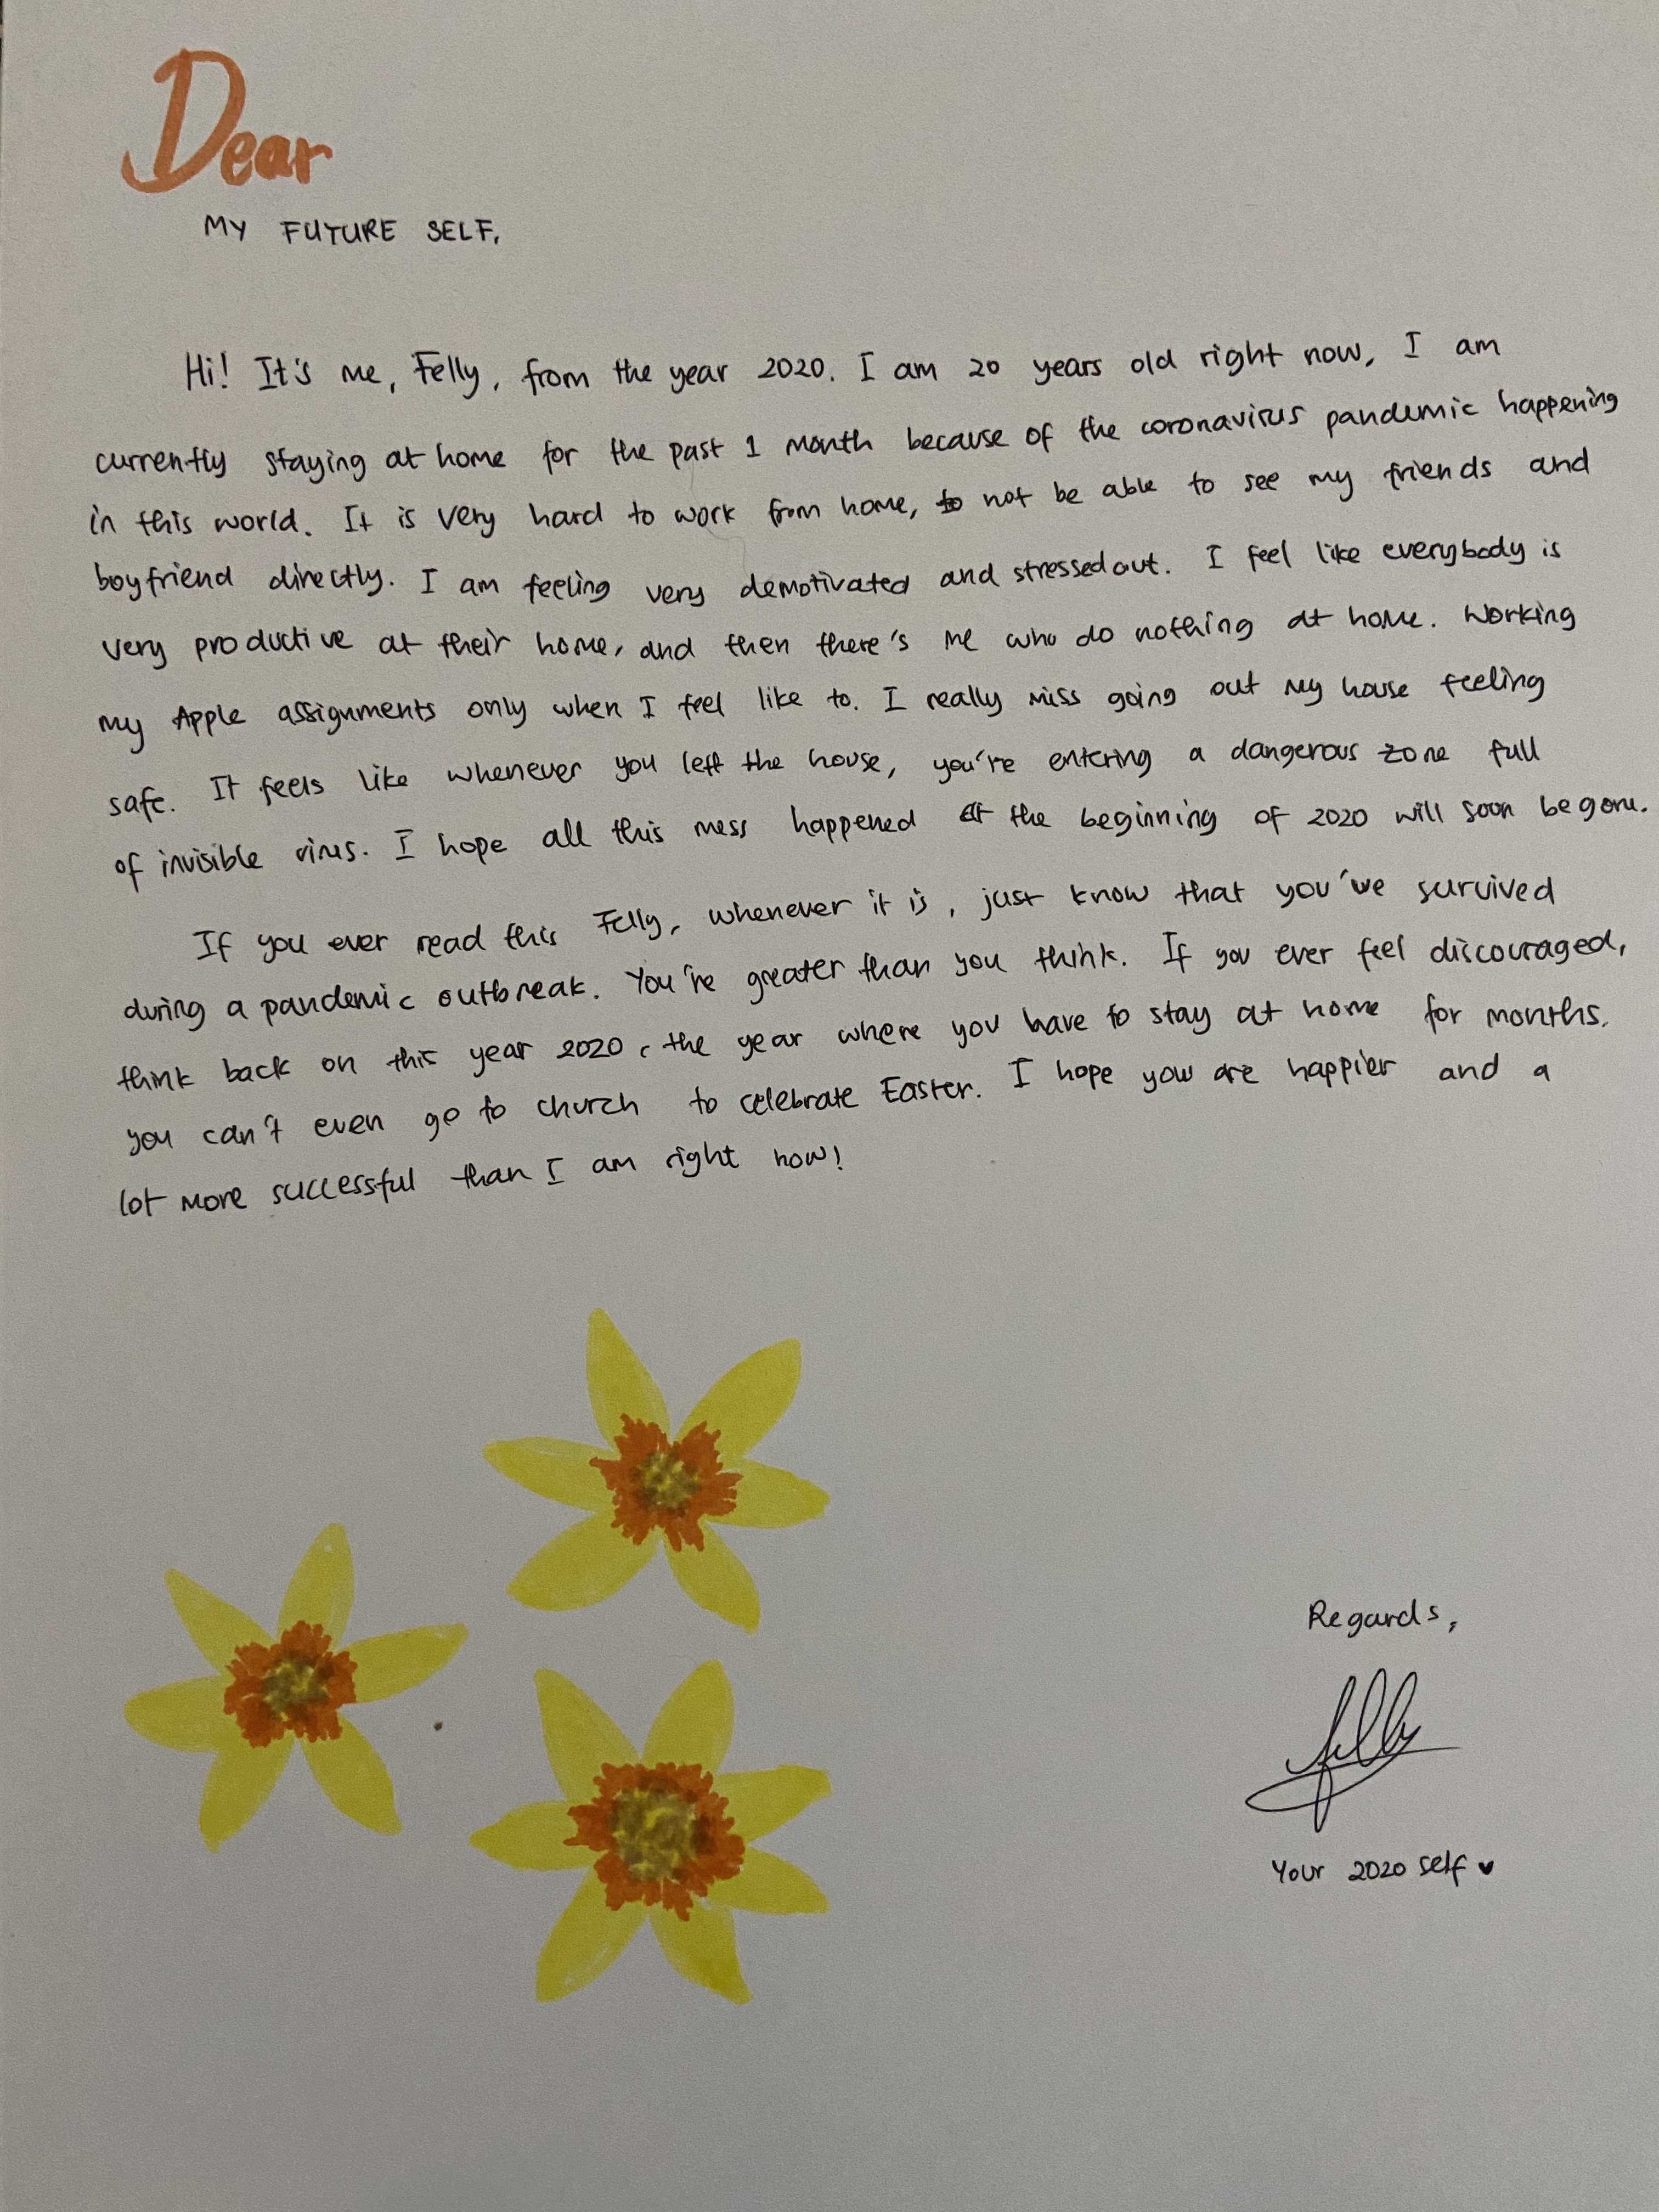 Dear
MY FUTURE SELF,
Hi! It's me, Felly, from the year 2020. I am 20 years old right now, I am
currently staying at home for the past 1 month because of the coronavirus pandemic happening
in this world. It is very hard to work from home, to not be able to see my friends and
boyfriend directly. I am feeling very demotivated and stressed out. I feel like everybody is
very productive at their home, and then there's me who do nothing at home. Working
my Apple assignments only when I feel like to. I really miss going out my house feeling
safe. It feels like whenever you left the house, you're entering a dangerous zone full
of invisible virus. I hope all this mess happened at the beginning of 2020 will soon be gone.
If you ever read this Felly, whenever it is, just know that you've survived
during a pandemic outbreak. You're greater than you think. If you ever feel discouraged,
think back on this year 2020, the year where you have to stay at home for months.
you can't even go to church to celebrate Easter. I hope you are happier and a
lot more successful than I am right now!
Regards,
felly
Your 2020 self ♥